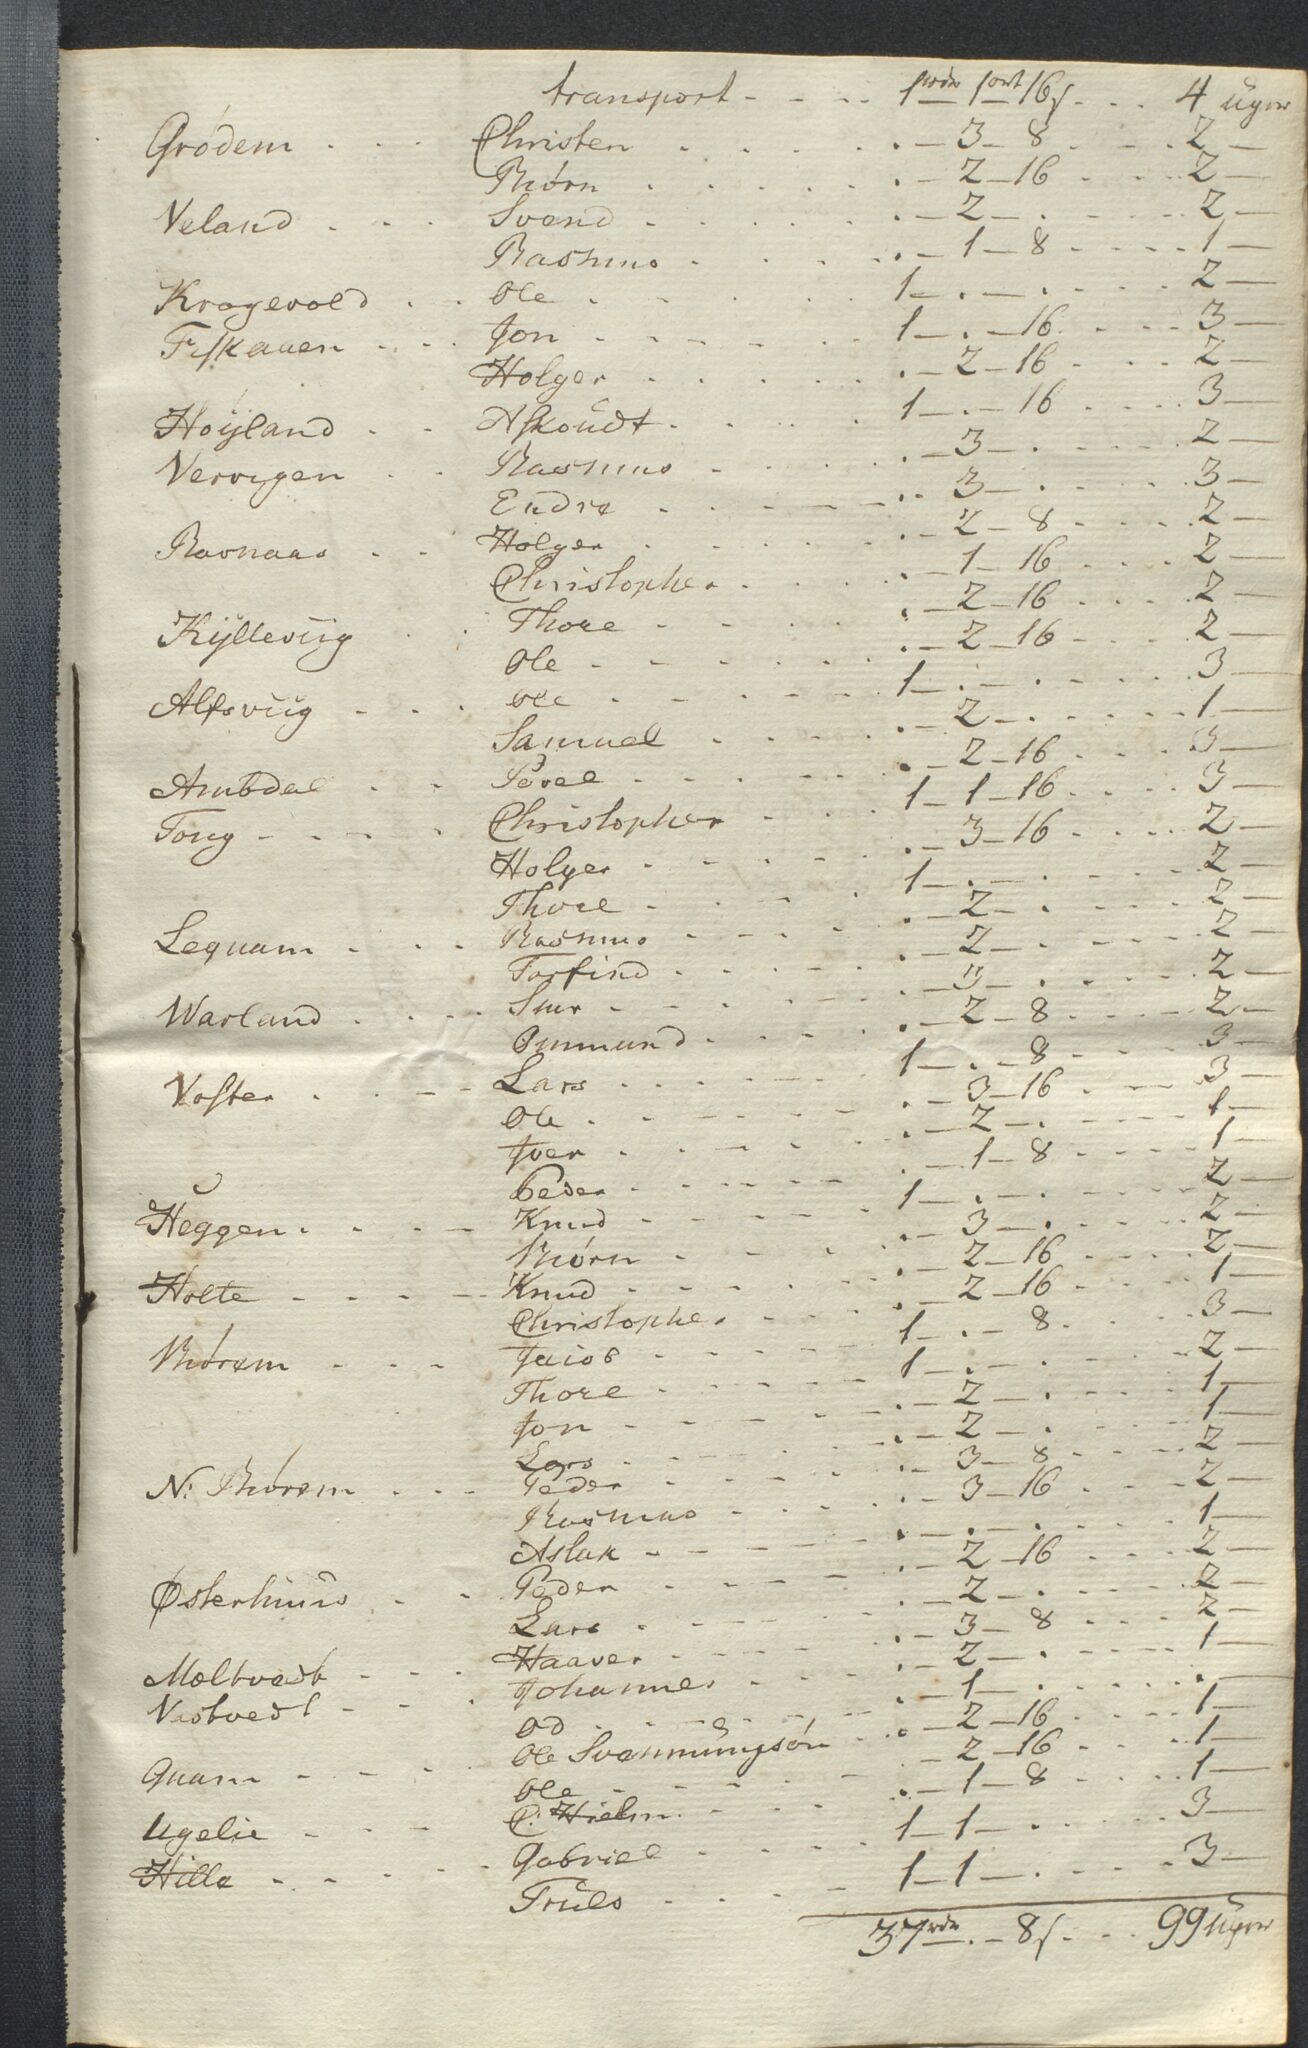 transport - - - - 1 rdr 1 ort 16 s - - - 4 Uger
Grödem - - - Christen - - - . - 3 - 8 - - - 2 -
Biörn - - - . - 2 - 16 - - - 2 -
Veland - - - Svend - - - . - 2 - . - - - 2 -
Rasmus - - - . - 1 - 8 - - - 1 -
Kragevold - - Ole - - - 1 - . - . - - - 2 -
Fiskauen - - - Jon - - - 1 - . - 16 - - - 3 -
Holger - - - . - 2 - 16 - - - 2 -
Höyland - - Askoudt - - - 1 - . - 16 - - - 3 -
Vervigen - - Rasmus - - - . - 3 - . - - - 2 -
Endre - - - . - 3 - . - - - 3 -
Ravnaas - - Holger - - - . - 2 - 8 - - - 2 -
Christopher - - - . - 1 - 16 - - - 2 -
Kÿlleviig - - Thore - - - . - 2 - 16 - - - 2 -
Ole - - - . - 2 - 16 - - - 2 -
Alfsviig - - - Ole - - - 1 - . - . - - - 3 -
Samuel - - - . - 2 - . - - - 1 -
Ambdal - - Povel - - - . - 2 - 16 - - - 3 -
Tong - - - - Christopher - - - 1 - 1 - 16 - - - 3 -
Holger - - - . - 3 - 16 - - - 2 -
Thore - - - 1 - . - . - - - 2 -
Lequam - - - Rasmus - - - . - 2 - . - - - 2 -
Torfind - - - . - 2 - . - - - 2 -
Warland - - - - - - - . - 3 - . - - - 2 -
Gunmund - - - . - 2 - 8 - - - 2 -
Voster - - - Lars - - - 1 - . - 8 - - - 3 -
Ole - - - . - 3 - 16 - - - 3 -
Iver - - - . - 2 - . - - - 1 -
Peder - - - . - 1 - 8 - - - 1 -
Heggen - - - Knud - - - 1 - . - . - - - 2 -
Biörn - - - . - 3 - . - - - 2 -
Holte - - - - Knud - - - . - 2 - 16 - - - 2 -
Christopher - - - . - 2 - 16 - - - 1 -
Biörem - - - Jacob - - - 1 - . - 8 - - - 3 -
Thore - - - 1 - . - . - - - 2 -
Jon - - - . - 2 - . - - - 1 -
Lars - - - . - 2 - . - - - 1 -
N: Biörem - - - Peder - - - . - 3 - 8 - - - 2 -
Rasmus - - - . - 3 - 16 - - - 2 -
Aslak - - - . - . - . - - - 1 -
Østerhuus - - Peder - - - . - 2 - 16 - - - 2 -
Lars - - - . - 2 - . - - - 2 -
Haaver - - - . - 3 - 8 - - - 2 -
Mæltvedt - - - Johannes - - - . - 2 - . - - - 1 -
Vastvedt - - - Od - - - . - 1 - . - - - . -
Ole Svenmungsön - - . - 2 - 16 - - - 1 -
Quam - - - - Ole - - - - 2 - 16 - - - 1 -
Ugelie - - - C: Hielm - - - . - 1 - 8 - - - 1 -
Hille - - - - Gabriel - - - 1 - 1 - . - - - 3 -
Truls - - - 1 - 1 - . - - - 3 -
37 rdr . - 8 s - - - 99 Uger